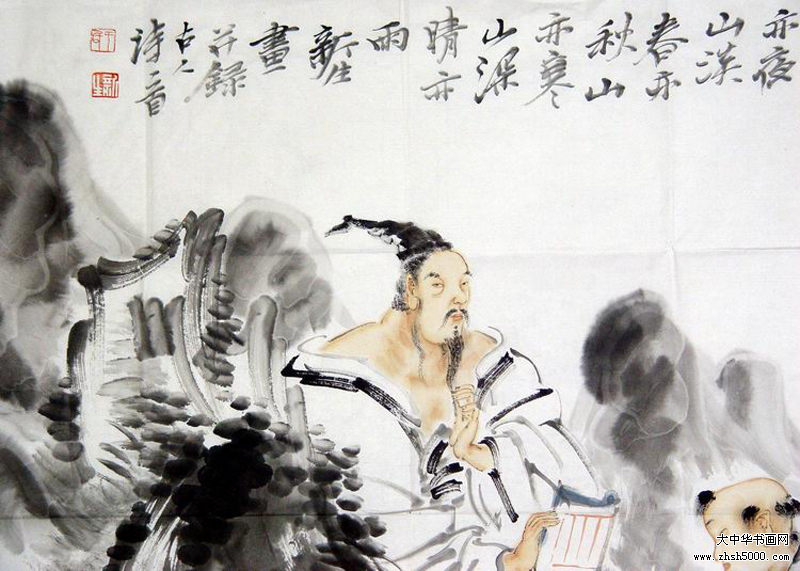 亦夜
山淡
春亦
秋山
亦寒
山深
晴亦
雨
新生
畫
并録
古人
诗一首
新生
大中华书画网
www.zhsh5000.com